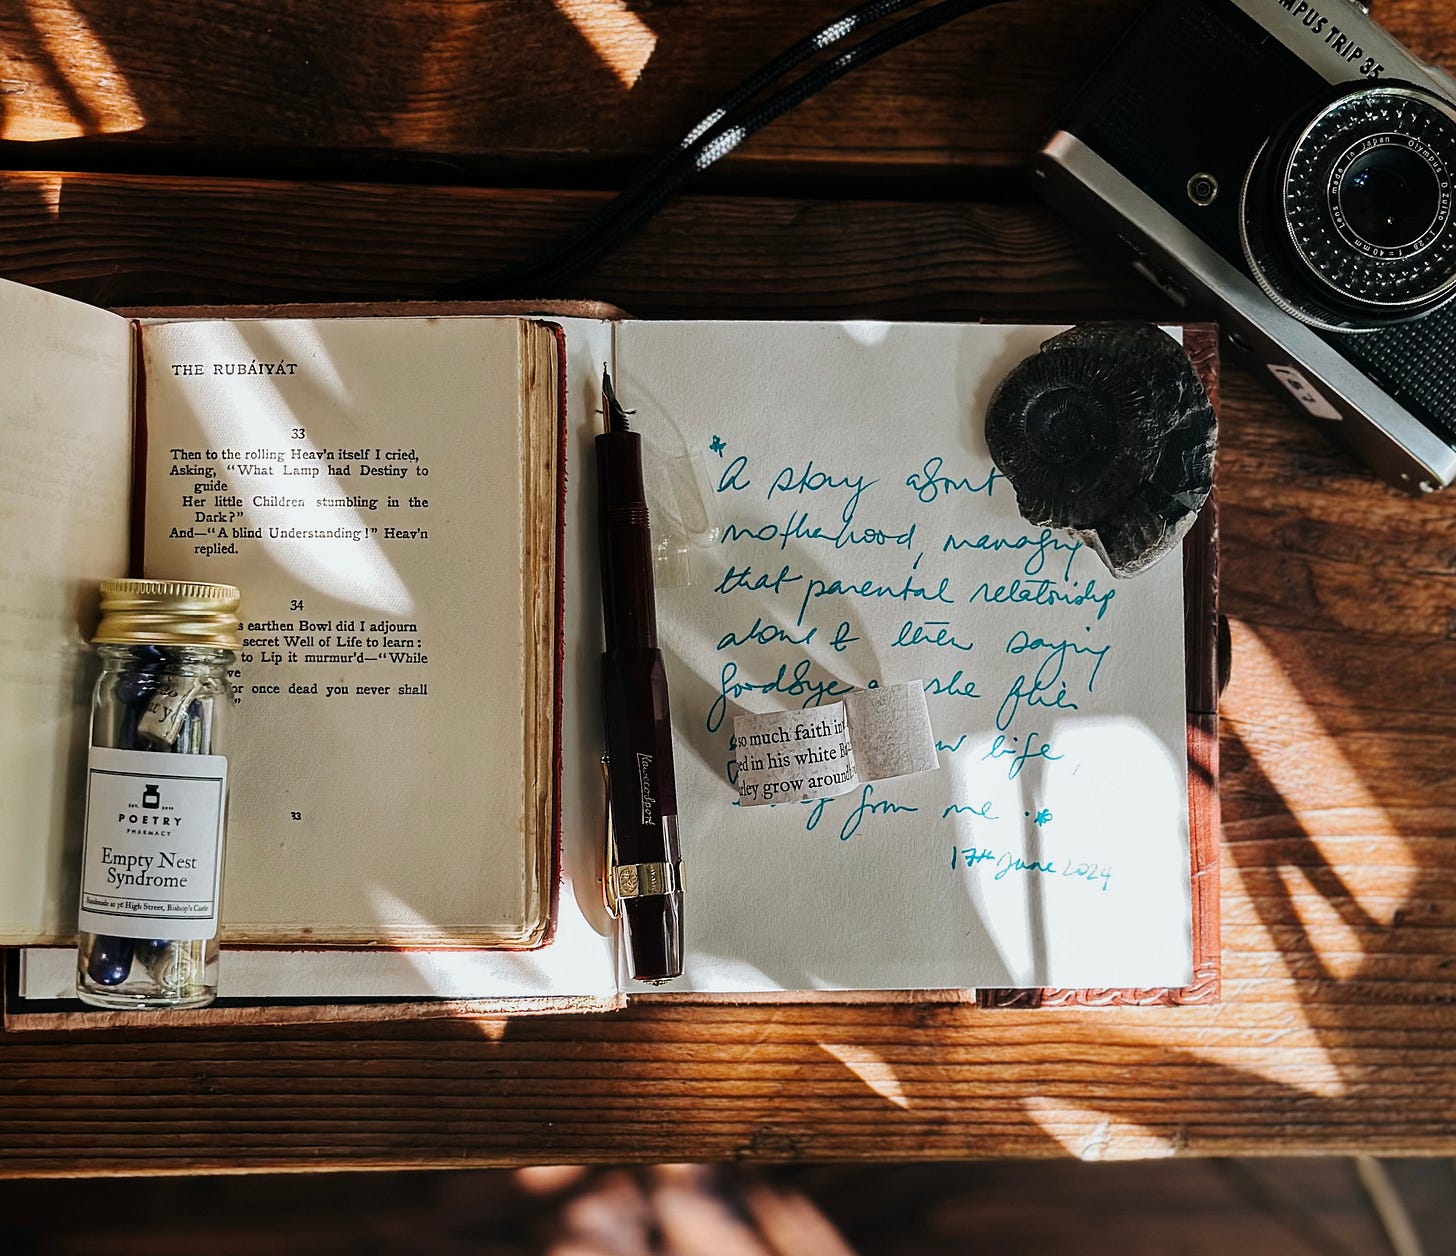 THE RUBÁIYÁT
33
Then to the rolling Heav'n itself I cried,
Asking, "What Lamp had Destiny to
guide
Her little Children stumbling in the
Dark?"
And—"A blind Understanding!" Heav'n
replied.
34
s earthen Bowl did I adjourn
secret Well of Life to learn:
to Lip it murmur'd—"While
ve
or once dead you never shall
"
33
EST. 2019
POETRY
PHARMACY
Empty Nest
Syndrome
Handmade at 36 High Street, Bishop's Castle
KawecoSport
*A story about
motherhood, managing
that parental relationship
alone & then saying
goodbye a she flies
w life
from me.*
17th June 2024
so much faith in
ed in his white B
ley grow around
MPUS TRIP 35
Lens made in Japan Olympus D.Zuiko 1:2.8 f=40mm